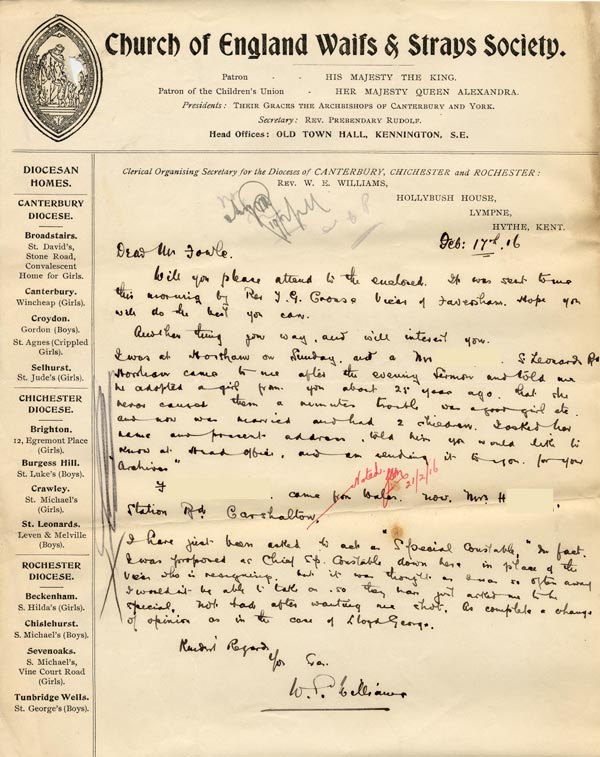 Church of England Waifs & Strays Society.
Patron - - HIS MAJESTY THE KING.
Patron of the Children's Union - HER MAJESTY QUEEN ALEXANDRA.
Presidents: THEIR GRACES THE ARCHBISHOPS OF CANTERBURY AND YORK.
Secretary: REV. PREBENDARY RUDOLF.
Head Offices: OLD TOWN HALL, KENNINGTON, S.E.
DIOCESAN
HOMES.
CANTERBURY
DIOCESE.
Broadstairs.
St. David's,
Stone Road,
Convalescent
Home for Girls.
Canterbury.
Wincheap (Girls).
Croydon.
Gordon (Boys).
St. Agnes (Crippled
Girls).
Selhurst.
St. Jude's (Girls).
CHICHESTER
DIOCESE.
Brighton.
12, Egremont Place
(Girls).
Burgess Hill.
St. Luke's (Boys).
Crawley.
St. Michael's
(Girls).
St. Leonards.
Leven & Melville
(Boys).
ROCHESTER
DIOCESE.
Beckenham.
S. Hilda's (Girls).
Chislehurst.
S. Michael's (Boys).
Sevenoaks.
S. Michael's,
Vine Court Road
(Girls).
Tunbridge Wells.
St. George's (Boys).
Clerical Organising Secretary for the Dioceses of CANTERBURY, CHICHESTER and ROCHESTER:
REV. W. E. WILLIAMS,
HOLLYBUSH HOUSE,
LYMPNE,
HYTHE, KENT.
Feb: 17th. 16
Dear Mr Fowle.
Will you please attend to the enclosed. It was sent to me
this morning by Rev T. G. Crosse Vicar of Faversham. Hope you
will do the best you can.
Another thing your way, and will interest you.
I was at Horsham on Sunday, and a Mr S Leonards Rd
Horsham came to me after the evening Sermon and told me
he adopted a girl from you about 25 years ago. that she
never caused them a minutes trouble was a good girl etc.
and now was married and had 2 children. I asked her
name and present address, told him you would like to
know at Head office, and am sending it to you. for your
Archives"
came from Wales. now. Mrs H
Station Rd, Carshalton.
Noted. 21/2/16
I have just been asked to act as "Special Constable," In fact.
I was proposed as Chief Sp. Constable down here in place of the
Vicar who is resigning, but it was thought as I was so often away
I wouldn't be able to take on. so they have just asked me to be
special, Not bad after wanting me shot. As complete a change
of opinion as in the case of Lloyd George.
Kindest Regards
W. E. Williams